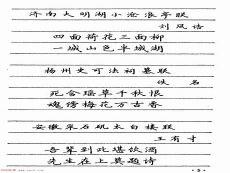 济南大明湖小沧浪亭联
刘凤诰
四面荷花三面柳
一城山色半城湖
扬州史可法祠墓联
佚名
死合瑶草千秋恨
魂绕梅花万古香
安徽采石矶太白楼联
王有才
吾辈到此堪饮酒
先生在上莫题诗